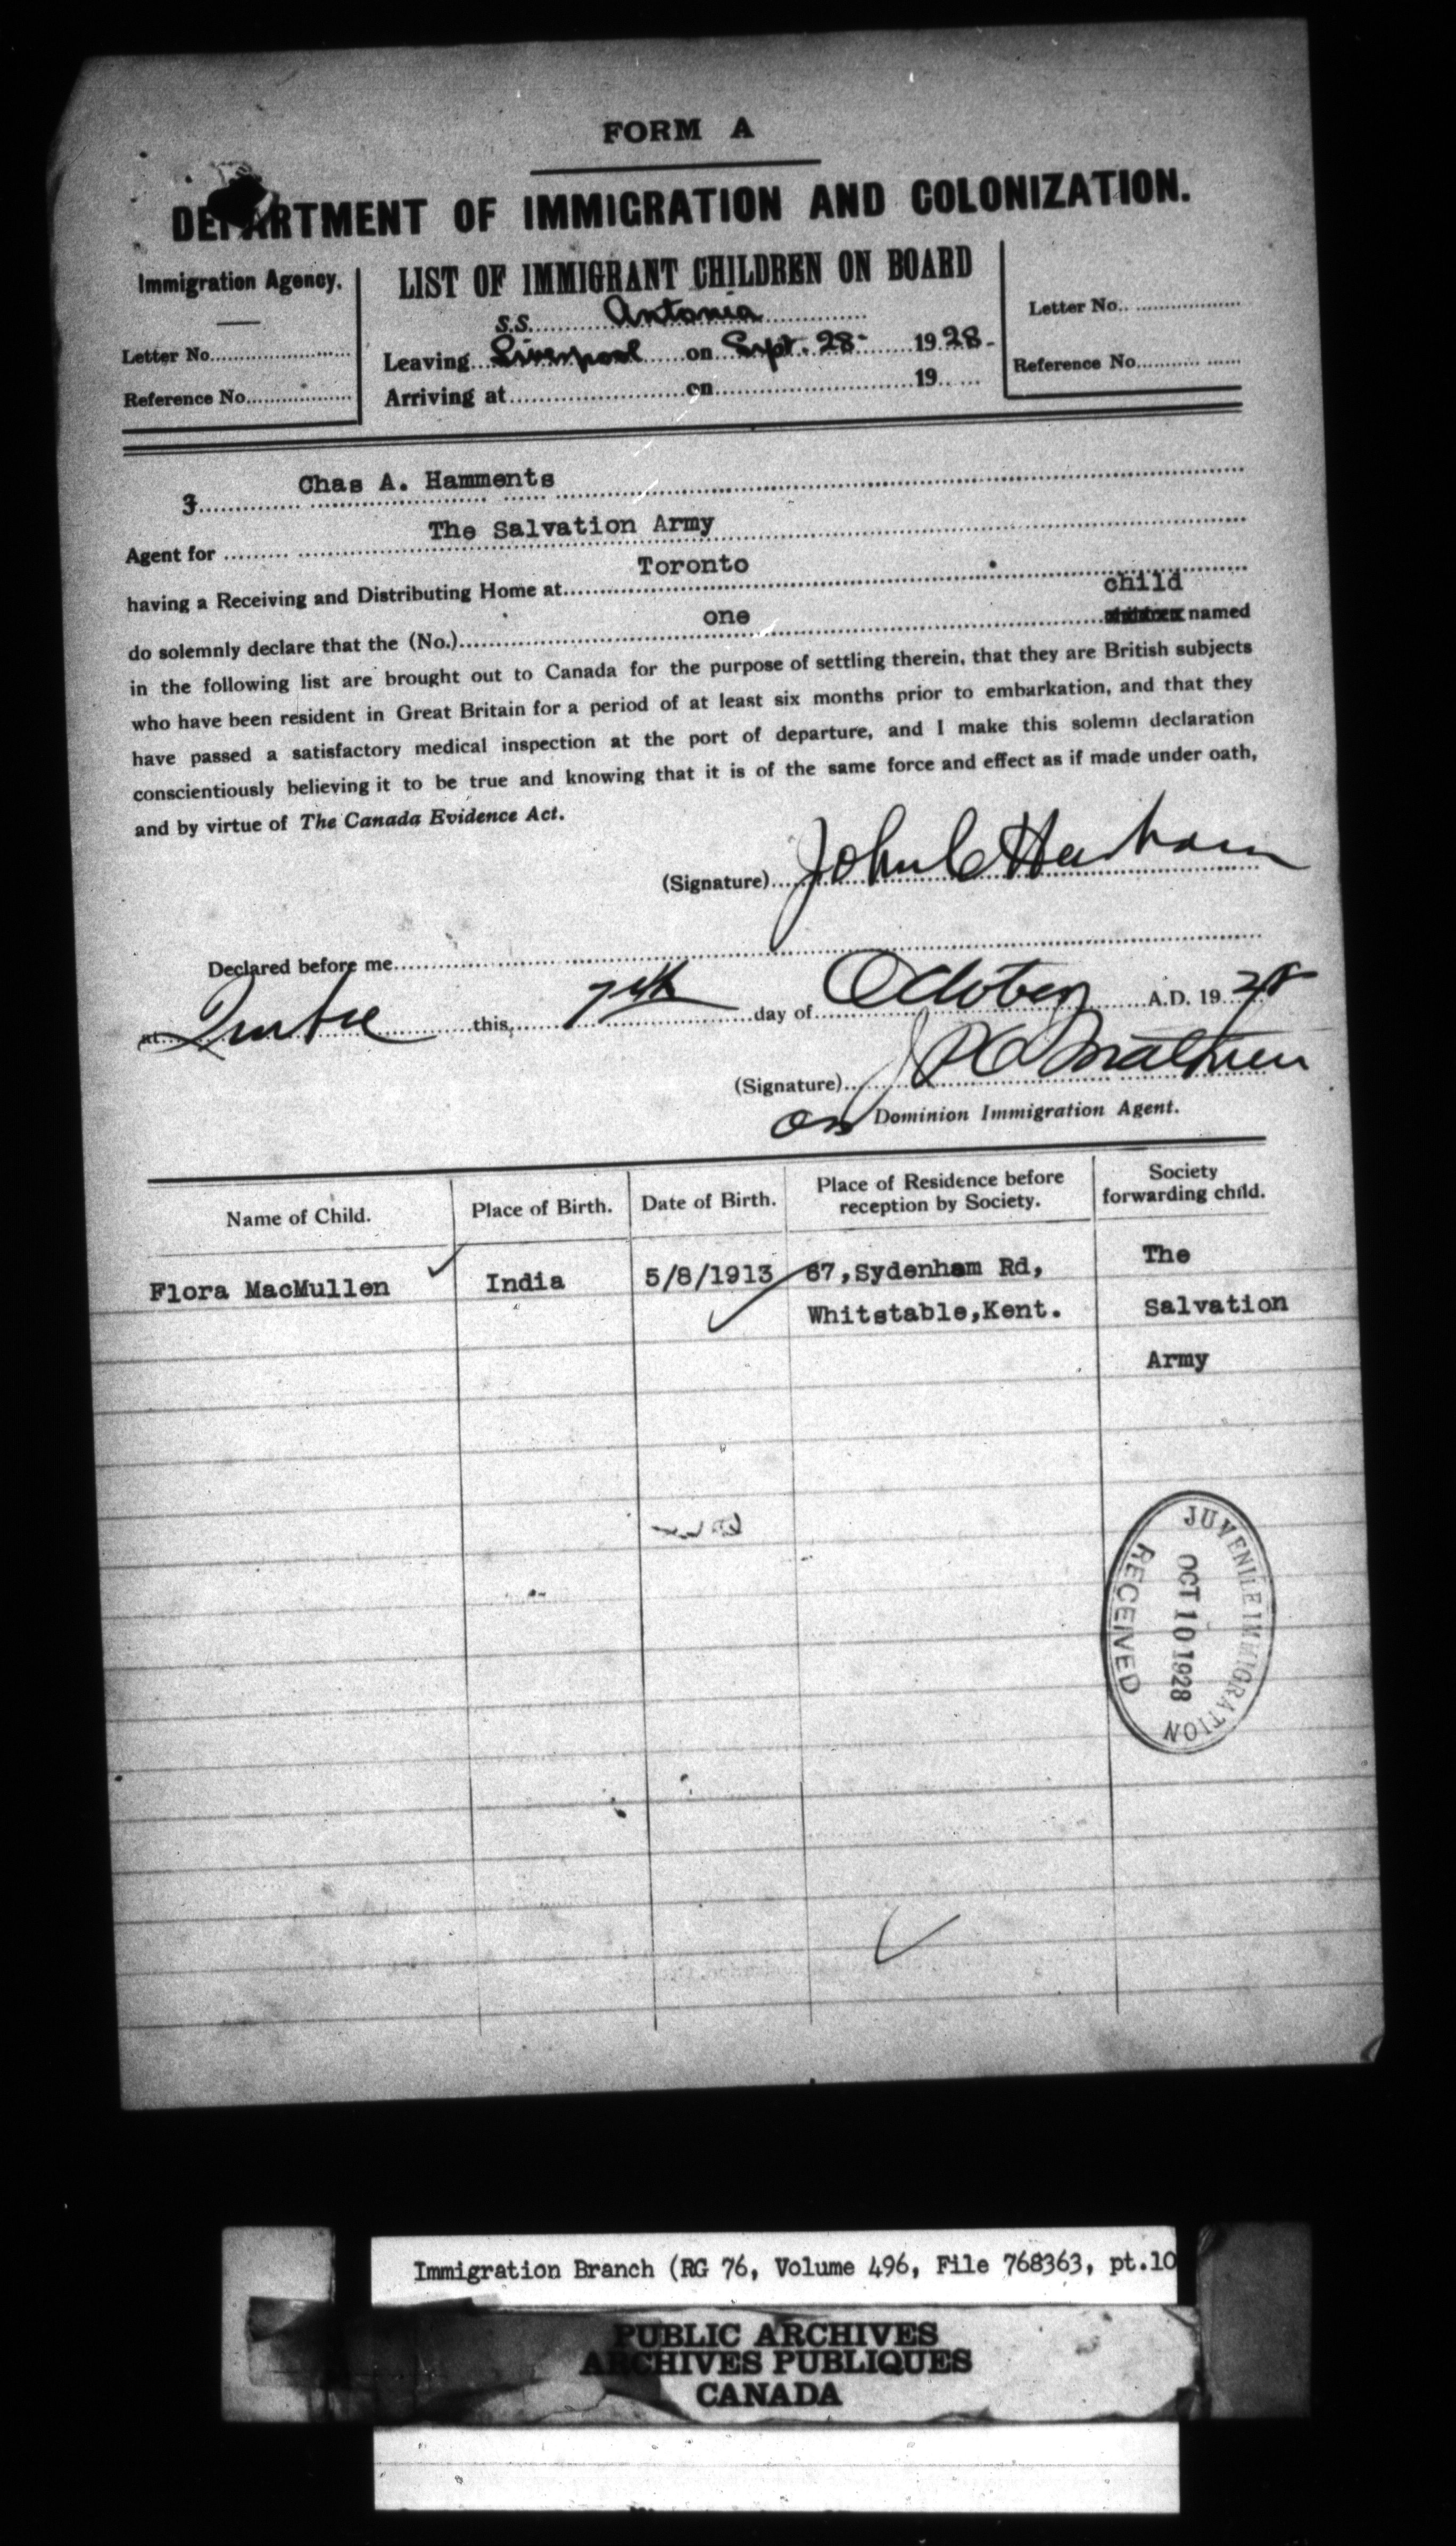 FORM A
DEPARTMENT OF IMMIGRATION AND COLONIZATION.
Immigration Agency.
Letter No.
Reference No.
LIST OF IMMIGRANT CHILDREN ON BOARD
S.S. Antonia
Leaving Liverpool on Sept. 28- 1928-
Arriving at on 19
Letter No.
Reference No.
Chas A. Hamments
Agent for The Salvation Army
having a Receiving and Distributing Home at Toronto
do solemnly declare that the (No.) one child named
in the following list are brought out to Canada for the purpose of settling therein, that they are British subjects
who have been resident in Great Britain for a period of at least six months prior to embarkation, and that they
have passed a satisfactory medical inspection at the port of departure, and I make this solemn declaration
conscientiously believing it to be true and knowing that it is of the same force and effect as if made under oath,
and by virtue of The Canada Evidence Act.
(Signature) John C
Declared before me
at Quebec this 7th day of October A.D. 1928
(Signature)
Dominion Immigration Agent.
Name of Child. Place of Birth. Date of Birth. Place of Residence before reception by Society. Society forwarding child.
Flora MacMullen India 5/8/1913 67,Sydenham Rd, The
Whitstable,Kent. Salvation
Army
JUVENILE IMMIGRATION
OCT 10 1928
RECEIVED
Immigration Branch (RG 76, Volume 496, File 768363, pt.10
PUBLIC ARCHIVES
ARCHIVES PUBLIQUES
CANADA